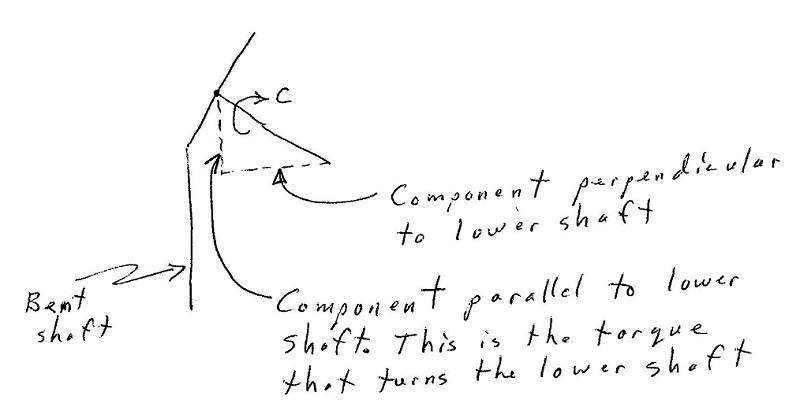 C
Component perpendicular
to lower shaft
Bent
shaft
Component parallel to lower
shaft. This is the torque
that turns the lower shaft